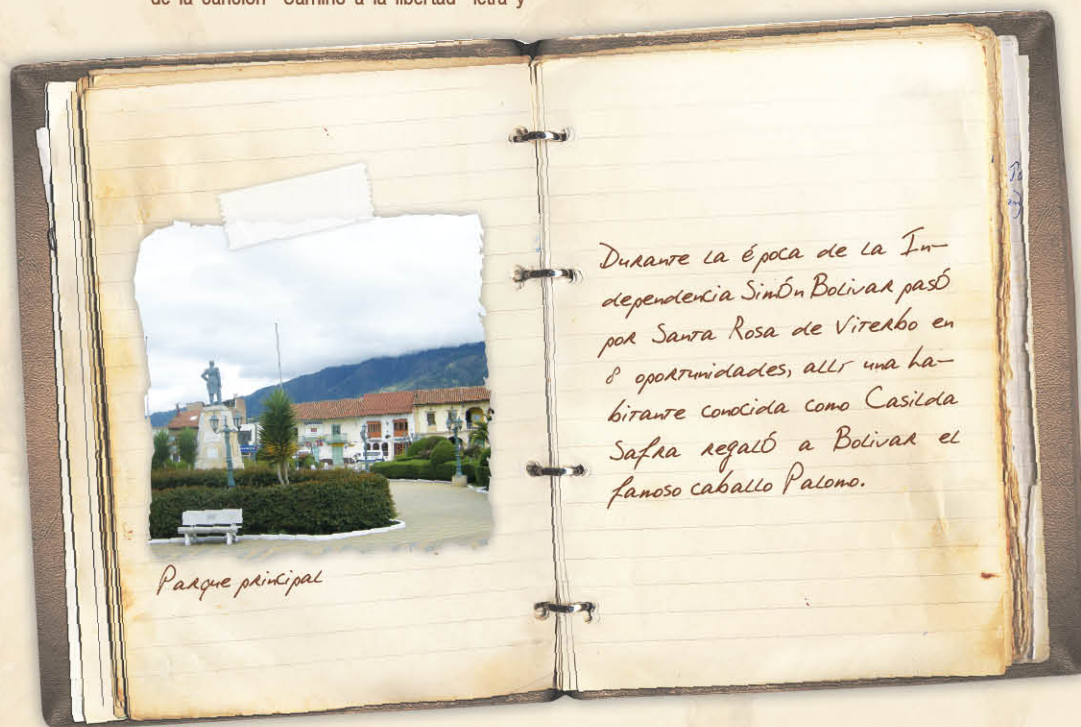 de la canción "Camino a la libertad" letra y
Durante la época de la In-
dependencia Simón Bolivar pasó
por Santa Rosa de Viterbo en
8 oportunidades, allí una ha-
bitante conocida como Casilda
Safra regaló a Bolivar el
famoso caballo Palomo.
Parque principal